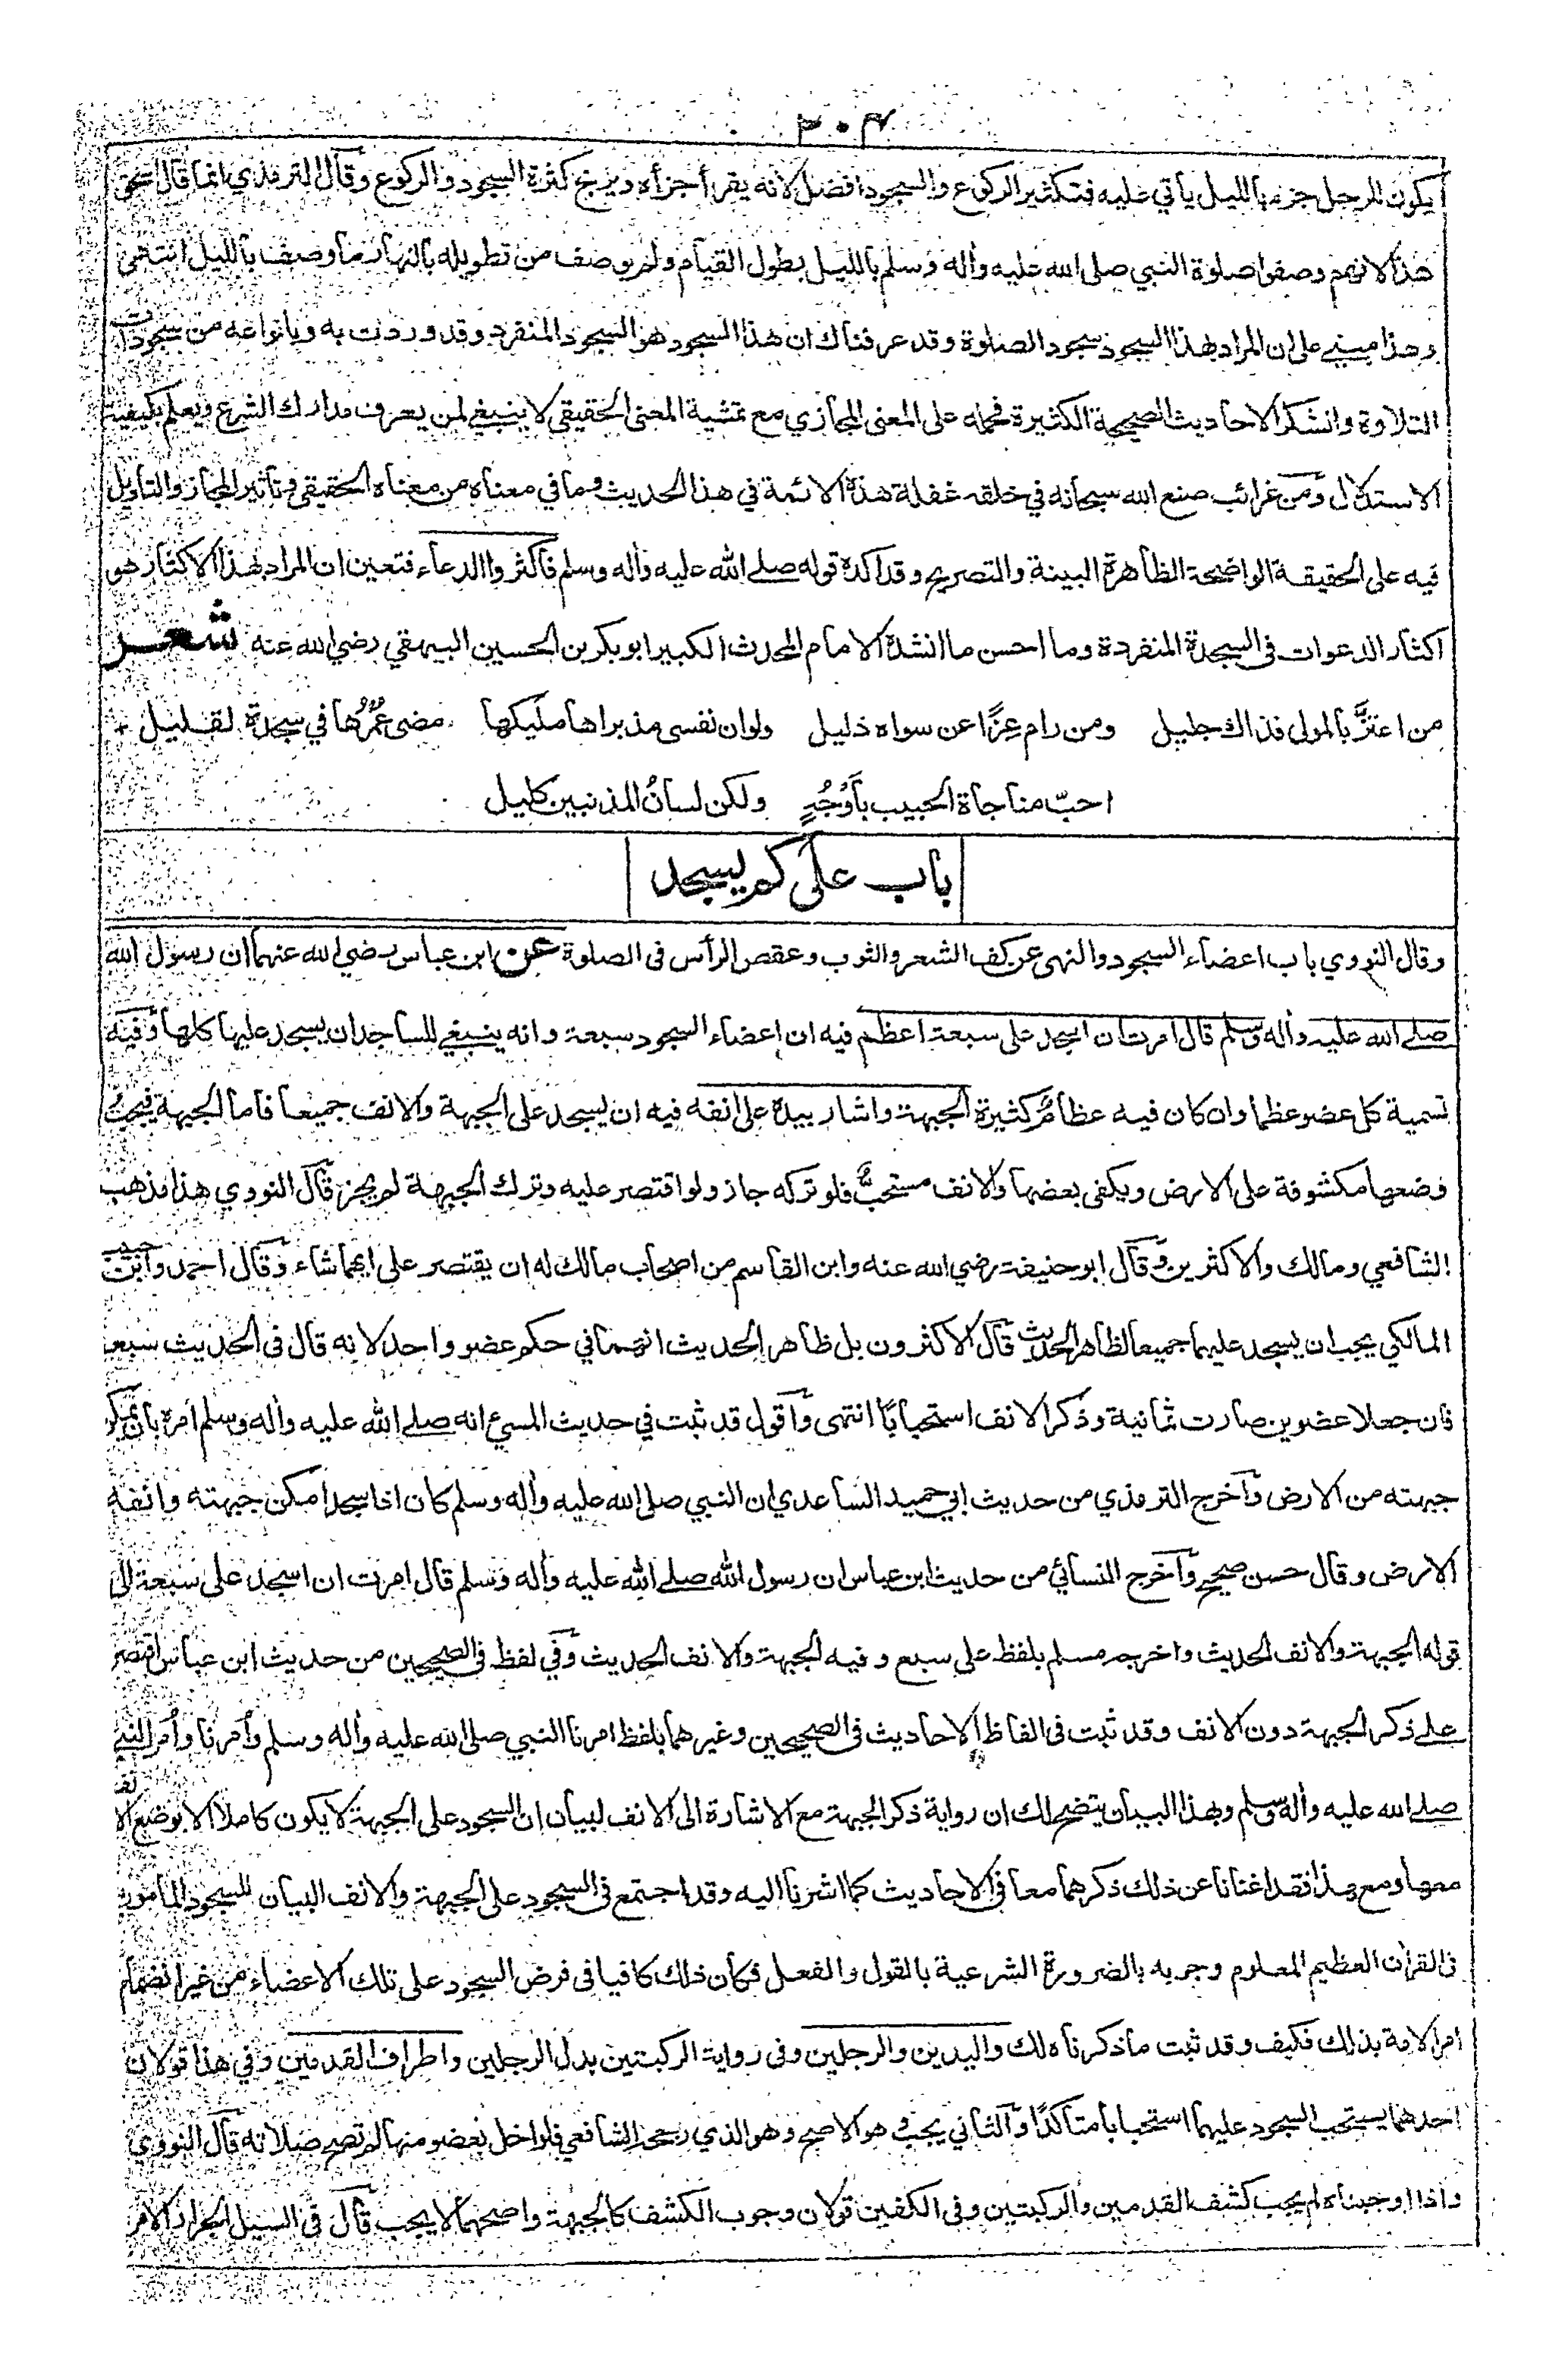 ٣٠٣
يكون للرجل جزء بالليل يأتي عليه فتكثير الركوع والسجود افضل لانه يقرأ جزأه ويربح كثرة السجود والركوع وقال الترمذي انما قال اسحق
هذا لانهم وصفوا صلوة النبي صلى الله عليه وأله وسلم بالليل بطول القيام ولم يوصف من تطويله بالنهار ما وصف بالليل انتهى
وهذا مبني على ان المراد بهذا السجود سجود الصلوة وقد عرفناك ان هذا السجود هو السجود المنفرد وقد وردت به وبانواعه من سجودات
التلاوة والشكر الاحاديث الصحيحة الكثيرة فحمله على المعنى المجازي مع تمشية المعنى الحقيقي لا ينبغي لمن يعرف مدارك الشرع ويعلم بكيفية
الاستدلال ومن غرائب صنع الله سبحانه في خلقه غفلة هذه الائمة في هذا الحديث وما في معناه من معناه الحقيقي وتأثير المجاز والتأويل
فيه على الحقيقة الواضحة الظاهرة البينة والتصريح وقد اكده قوله صلى الله عليه وأله وسلم فأكثروا الدعاء فتعين ان المراد بهذا الاكثار هو
اكثار الدعوات في السجدة المنفردة وما احسن ما انشده الامام المحدث الكبير ابو بكر بن الحسين البيهقي رضي الله عنه شعر
من اعتزَّ بالمولى فذاك جليل ومن رام عِزًّا عن سواه ذليل ولو ان نفسي مذ براها مليكها مضى عُمْرُها في سجدة لقليل
احبّ مناجاة الحبيب بأَوْجُهٍ ولكن لسانُ المذنبين كليل
باب على كم يسجد
وقال النووي باب اعضاء السجود والنهي عن كف الشعر والثوب وعقص الرأس في الصلوة عن ابن عباس رضي الله عنهما ان رسول الله
صلى الله عليه وأله وسلم قال امرت ان اسجد على سبعة اعظم فيه ان اعضاء السجود سبعة وانه ينبغي للساجد ان يسجد عليها كلها وفيه
تسمية كل عضو عظما وان كان فيه عظام كثيرة الجبهة واشار بيده على انفه فيه ان يسجد على الجبهة والانف جميعا فاما الجبهة فيجب
وضعها مكشوفة على الارض ويكفي بعضها والانف مستحبٌّ فلو تركه جاز ولو اقتصر عليه وترك الجبهة لم يجز قال النووي هذا مذهب
الشافعي ومالك والاكثرين وقال ابو حنيفة رضي الله عنه وابن القاسم من اصحاب مالك له ان يقتصر على ايهما شاء وقال احمد وابن حبيب
المالكي يجب ان يسجد عليهما جميعا لظاهر الحديث قال الاكثرون بل ظاهر الحديث انهما في حكم عضو واحد لانه قال في الحديث سبعة
فان جعلا عضوين صارت ثمانية وذكر الانف استحبابًا انتهى واقول قد ثبت في حديث المسيء انه صلى الله عليه وأله وسلم امره بان يمكن
جبهته من الارض واخرج الترمذي من حديث ابي حميد الساعدي ان النبي صلى الله عليه وأله وسلم كان اذا سجد امكن جبهته وانفه
الارض وقال حسن صحيح واخرج النسائي من حديث ابن عباس ان رسول الله صلى الله عليه وأله وسلم قال امرت ان اسجد على سبعة الى
قوله الجبهة والانف الحديث واخرجه مسلم بلفظ على سبع وفيه الجبهة والانف الحديث وفي لفظ في الصحيحين من حديث ابن عباس اقتصر
على ذكر الجبهة دون الانف وقد ثبت في الفاظ الاحاديث في الصحيحين وغيرهما بلفظ امرنا النبي صلى الله عليه وأله وسلم وأمرنا وأمر النبي
صلى الله عليه وأله وسلم وبهذا البيان يتضح لك ان رواية ذكر الجبهة مع الاشارة الى الانف لبيان ان السجود على الجبهة لا يكون كاملا الا بوضع الانف
معها ومع هذا فقد اغنانا عن ذلك ذكرهما معا في الاحاديث كما اشرنا اليه وقد اجتمع في السجود على الجبهة والانف البيان للسجود المأمور به
في القرأن العظيم المعلوم وجوبه بالضرورة الشرعية بالقول والفعل فكان ذلك كافيا في فرض السجود على تلك الاعضاء من غير انضمام
امر الامة بذلك فكيف وقد ثبت ما ذكرناه لك واليدين والرجلين وفي رواية الركبتين بدل الرجلين واطراف القدمين وفي هذا قولان
احدهما يستحب السجود عليهما استحبابا متأكدًا والثاني يجب وهو الاصح وهو الذي رجحه الشافعي فلو اخل بعضو منها لم تصح صلاته قال النووي
واذا اوجبناه لم يجب كشف القدمين والركبتين وفي الكفين قولان وجوب الكشف كالجبهة واصحهما لا يجب قال في السيل الجرار الامر